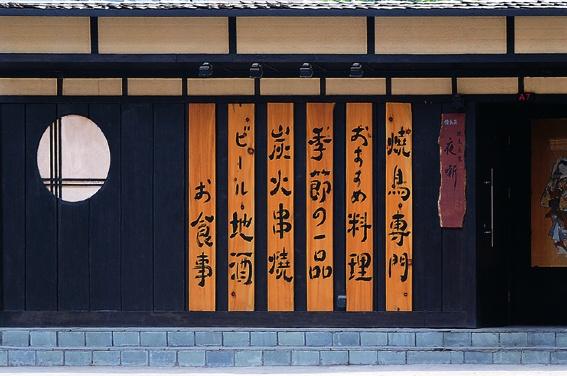 燒鳥・專門。
おすすめ料理
季節の一品
炭火串燒
・ビール・地酒・
お食事
夜斬
A7